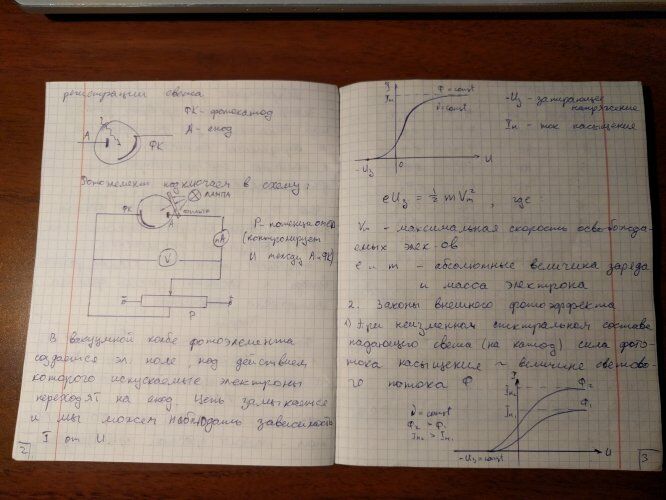 регистрации света
ФК - фотокатод
А - анод
А
ФК
Фотоэлемент подключаем в схему:
ЛАМПА
ФК
А
фильтр
mA
V
P - потенциометр
(контролирует
U между А и ФК)
P
В вакуумной колбе фотоэлемента
создается эл. поле, под действием
которого испускаемые электроны
переходят на анод. Цепь замыкается
и мы можем наблюдать зависимость
I от U.
2
I
Iн
Ф = const
ν = const
-Uз
0
U
-Uз - запирающее
напряжение
Iн - ток насыщения
eUз = 1/2 mVm², где
Vm - максимальная скорость освобожда
емых элек-ов
e и m - абсолютные величина заряда
и масса электрона
2. Законы внешнего фотоэффекта
1) При неизменном спектральном составе
падающего света (на катод) сила фото
тока насыщения ~ величине светово-
го потока Ф
ν = const
Ф2 > Ф1
Iн2 > Iн1
I
Iн2
Iн1
Ф2
Ф1
-Uз = const
U
3